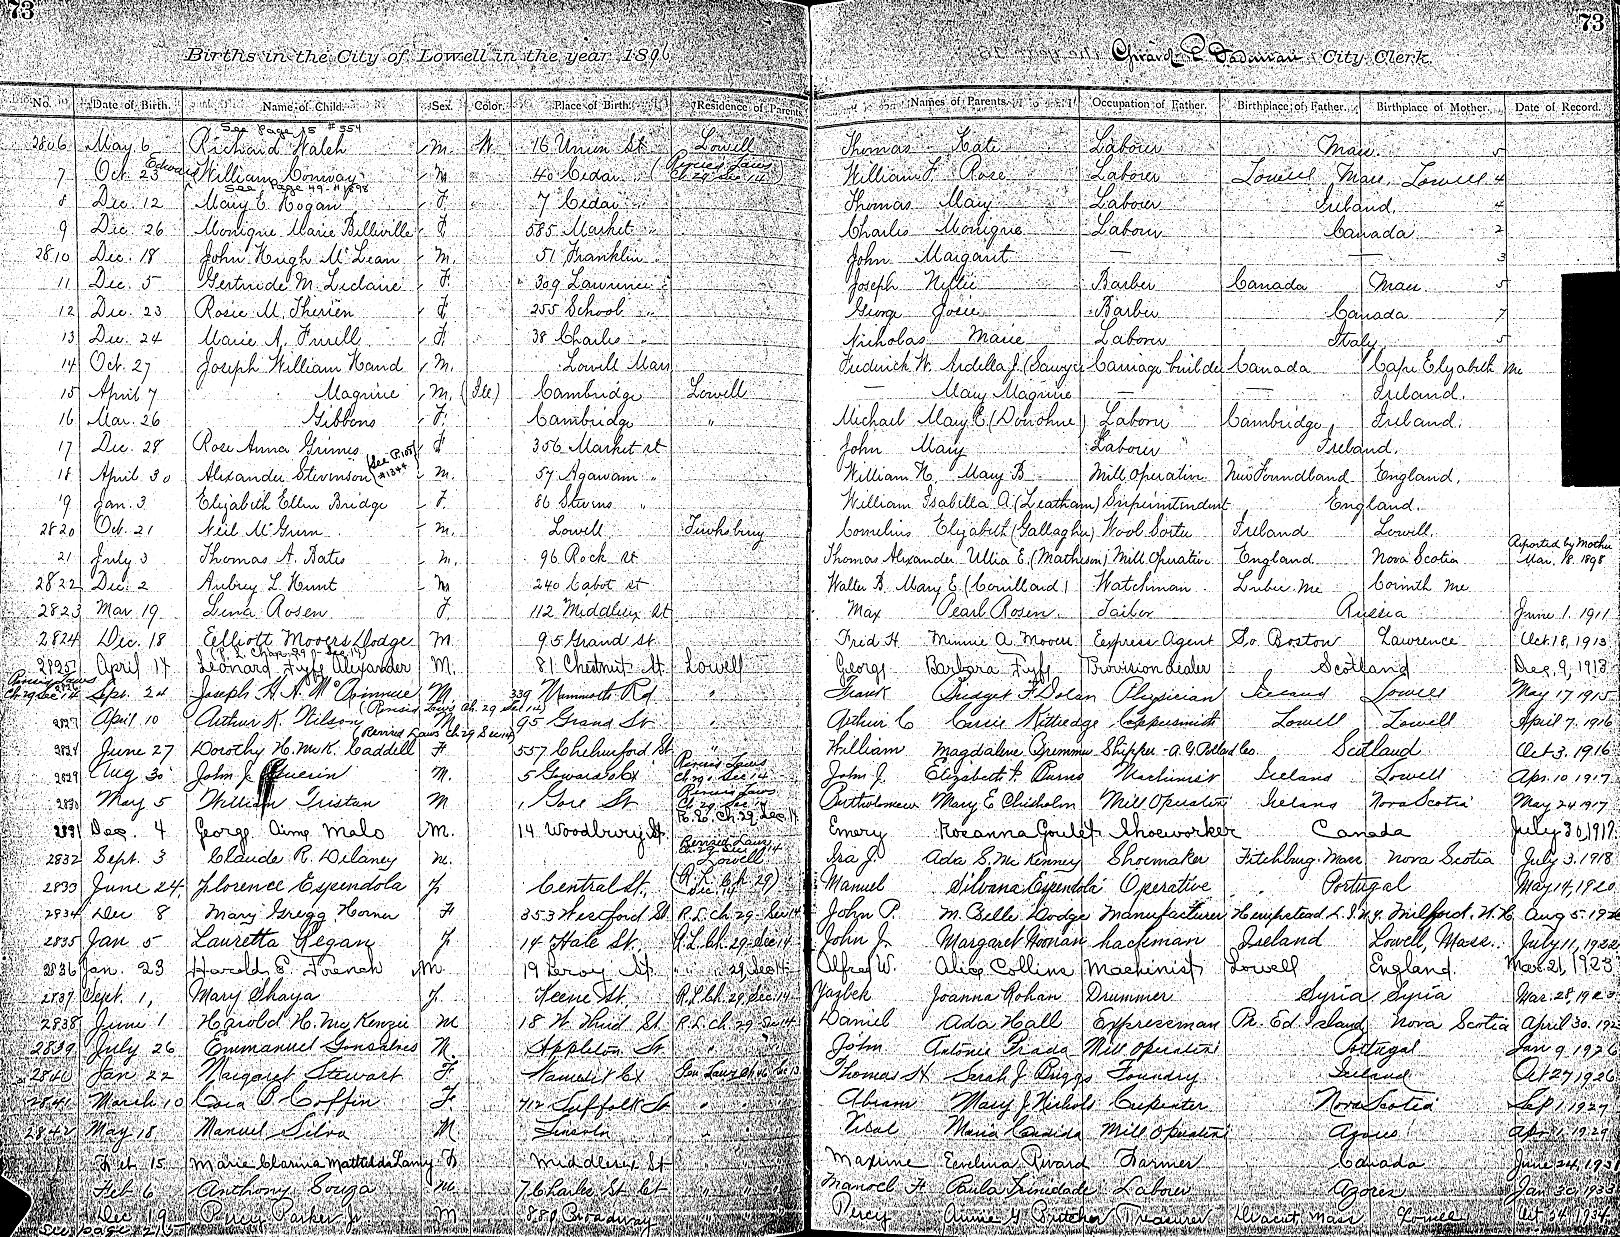 73
73
Births in the City of Lowell in the year 1896
Girard P. Dadman City Clerk.
No. Date of Birth. Name of Child. Sex. Color. Place of Birth. Residence of Parents. Names of Parents. Occupation of Father. Birthplace of Father. Birthplace of Mother. Date of Record.
See Page 15 # 554
2806 May 6 Richard Walsh M. W 16 Union St Lowell Thomas Kate Laborer Mass. 5
7 Oct. 23 Edward William Conway M 40 Cedar " (Revised Laws Ch. 29 Sec 14) William F. Rose Laborer Lowell Mass. Lowell 4
See Page 49 # 1898
8 Dec. 12 Mary E. Hogan F. 7 Cedar " Thomas Mary Laborer Ireland. 4
9 Dec. 26 Monique Marie Belliville F 585 Market " Charles Monique Laborer Canada 2
2810 Dec. 18 John Hugh McLean M. 51 Franklin " John Margaret — — 3
11 Dec. 5 Gertrude M. Leclaire F. 309 Lawrence " Joseph Nellie Barber Canada Mass. 5
12 Dec. 23 Rosie M. Therien F 255 School " George Josie Barber Canada 7
13 Dec. 24 Marie A. Furell F 38 Charles " Nicholas Marie Laborer Italy 5
14 Oct. 27 Joseph William Hand M. Lowell Mass Frederick W. Ardella J. (Sawyer Carriage builder Canada Cape Elizabeth Me
15 April 7 Maguire M. (Ill) Cambridge Lowell — Mary Maguire — — Ireland.
16 Mar. 26 Gibbons F. Cambridge " Michael Mary E. (Donohue) Laborer Cambridge Ireland.
17 Dec. 28 Rose Anna Grimes F 356 Market st John Mary Laborer Ireland.
18 April 30 Alexander Stevenson (See P. 105 #1344 M. 57 Agawam " William H. Mary B. Mill Operative New Foundland England.
19 Jan. 3 Elizabeth Ellen Bridge F. 86 Stevens " William Isabella A. (Leatham) Superintendent England.
2820 Oct. 21 Neil McGrum M. Lowell Tewksbury Cornelius Elizabeth (Gallagher) Wool Sorter Ireland Lowell.
21 July 3 Thomas A. Bates M. 96 Rock st Thomas Alexander Ullia E. (Matheson) Mill Operative England Nova Scotia Reported by Mother Mar. 18. 1898
2822 Dec. 2 Aubrey L. Hunt M 240 Cabot st Walter B. Mary E. (Couillard) Watchman Lubec Me Corinth Me
2823 Mar. 19 Lena Rosen F. 112 Middlesex st Max Pearl Rosen Tailor Russia June 1. 1911
2824 Dec. 18 Elliott Moores Dodge M. 95 Grand st Fred H. Minnie A. Moores Express Agent So. Boston Lawrence Oct. 18, 1913
(R. L. Chap. 29, Sec 14)
2825 April 14 Leonard Fyff Alexander M. 81 Chestnut St. Lowell George Barbara Fyff Provision dealer Scotland Dec. 9, 1913
Revised Laws Ch. 29 Sec 14
2826 Sept. 24 Joseph H. A. McAvinnue M. 339 Mammoth Rd " Frank Bridget F. Dolan Physician Ireland Lowell May 17 1915
(Revised Laws Ch. 29 Sec 14)
2827 April 10 Arthur K. Wilson M. 95 Grand St " Arthur C Carrie Kittredge Coppersmith Lowell Lowell April 7. 1916
(Revised Laws Ch. 29 Sec 14)
2828 June 27 Dorothy H. McK. Caddell F 557 Chelmsford St. " William Magdalene Bremner Shipper - A. G. Pollard Co. Scotland Oct 3. 1916
2829 Aug 30 John J. Guerin M. 5 Seward's Ct Revised Laws Ch. 29. Sec 14 John J. Elizabeth F. Burns Machinist Ireland Lowell Apr. 10 1917
2830 May 5 William Tristan M 1 Gore St Revised Laws Ch. 29. Sec 14 Bartholomew Mary E Chisholm Mill Operative Ireland Nova Scotia May 24 1917
2831 Dec. 4 George Aimé Malo M. 14 Woodbury St. R. L. Ch. 29 Sec. 14 Emery Roseanna Goulet Shoeworker Canada July 30, 1917
2832 Sept. 3 Claude R. Delaney M. Revised Laws Ch. 29 Sec 14 Lowell Ira J. Ada S. McKenney Shoemaker Fitchburg Mass Nova Scotia July 3. 1918
2833 June 24, Florence Espendola F Central St. (R. L. Ch. 29) Sec 14 Manuel Silvana Espendola Operative Portugal May 14, 1920
2834 Dec 8 Mary Gregg Horner F 353 Westford St. R. L. Ch. 29 Sec 14 John P. M. Belle Dodge Manufacturer Hempstead L. I. N. Y. Milford, N. H. Aug 5. 192
2835 Jan 5 Lauretta Regan F 14 Hale St. R. L. Ch. 29 Sec 14 John J. Margaret Noonan hackman Ireland Lowell, Mass. July 11, 1922
2836 Jan. 23 Harold E. French M. 19 Leroy St. " 29, Sec 14 Alfred W. Alice Collins Machinist Lowell England Mar. 21, 1923
2837 Sept. 1, Mary Shaya F Keene St. R. L. Ch. 29, Sec. 14 Yazbek Joanna Rohan Drummer Syria Syria Mar. 28, 1923
2838 June 1 Harold H. McKenzie M 18 W. Third St R. L. Ch. 29 Sec 14 Daniel Ada Hall Expressman Pr. Ed. Island Nova Scotia April 30. 192
2839 July 26 Emmanuel Gonsalves M. Appleton St " John Antonia Prada Mill Operative Portugal Jan 9 1926
2840 Jan 22 Margaret Stewart F. Wamesit Ct Gen Laws Ch 46 Sec 13 Thomas H Sarah J. Briggs Foundry Ireland Oct 27 1926
2841 March 10 Cora P. Coffin F. 712 Suffolk St " Abram Mary J. Nichols Carpenter Nova Scotia Sep 1 1927
2842 May 18 Manuel Silva M Lincoln " Vidal Maria Candida Mill Operative Azores Apr. 1. 1929
Feb 15 Marie Clarina Mathilda Lamy F Middlesex St " Maxime Evelina Rivard Farmer Canada June 24, 1931
Feb 6 Anthony Souza M. 7 Charles St Ct " Manoel F Paula Trinidade Laborer Azores Jan 30 1933
Dec 19 Percy Parker Jr M 880 Broadway Percy Annie G Butcher Treasurer Dracut Mass Lowell Oct 24, 1934
See page 215